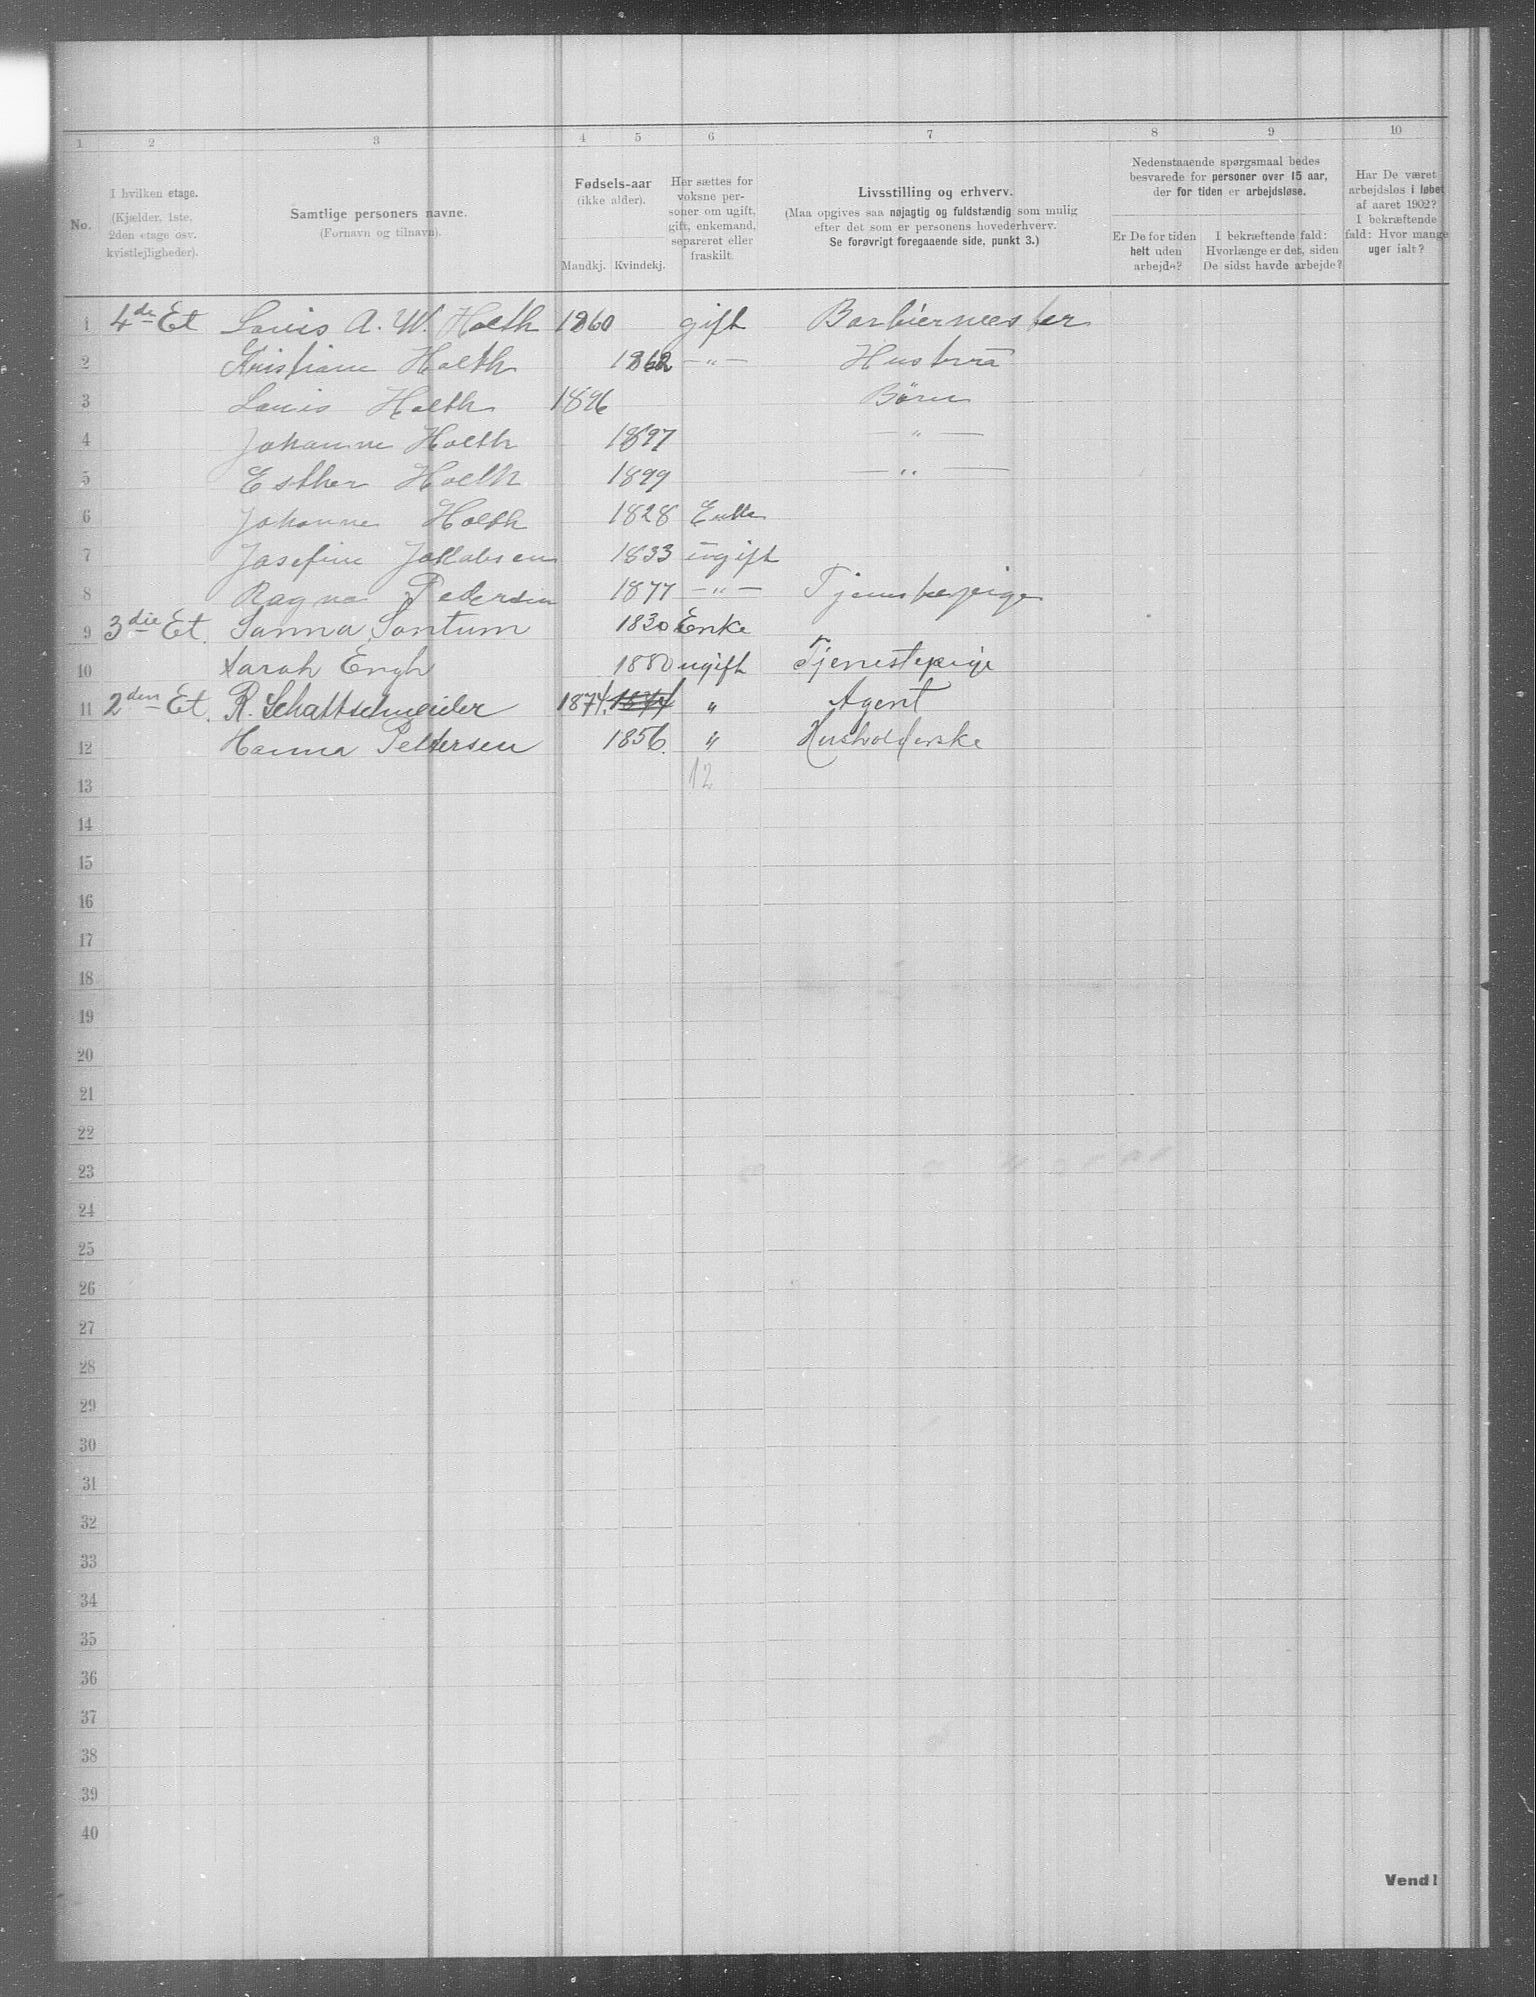 1 2 3 4 5 6 7 8 9 10
No.
I hvilken etage.
(Kjælder, 1ste,
2den etage osv.
kvistlejligheder).
Samtlige personers navne.
(Fornavn og tilnavn).
Fødsels-aar
(ikke alder).
Mandkj. Kvindekj.
Her sættes for
voksne per-
soner om ugift,
gift, enkemand,
separeret eller
fraskilt.
Livsstilling og erhverv.
(Maa opgives saa nøjagtig og fuldstændig som mulig
efter det som er personens hovederhverv.
Se forøvrigt foregaaende side, punkt 3.)
Nedenstaaende spørgsmaal bedes
besvarede for personer over 15 aar,
der for tiden er arbejdsløse.
Er De for tiden
helt uden
arbejde?
I bekræftende fald:
Hvorlænge er det, siden
De sidst havde arbejde?
Har De været
arbejdsløs i løbet
af aaret 1902?
I bekræftende
fald: Hvor mange
uger ialt?
1 4de Et Louis A. W. Holth 1860 gift Barbiermester
2 Kristiane Holth 1862 —〃— Hustru
3 Louis Holth 1896 Børn
4 Johanne Holth 1897 —〃—
5 Esther Holth 1899 —〃—
6 Johanne Holth 1828 Enke
7 Josefine Jakobsen 1833 ugift
8 Ragna Pedersen 1877 —〃— Tjenestepige
9 3die Et. Sanna Sontum 1830 Enke
10 Sarah Engh 1880 ugift Tjenestepige
11 2den Et. R. Schattschneider 1874. 1874 〃 Agent
12 Hanna Pettersen 1856. 〃 Husholderske
13 12
14
15
16
17
18
19
20
21
22
23
24
25
26
27
28
29
30
31
32
33
34
35
36
37
38
39
40
Vend!